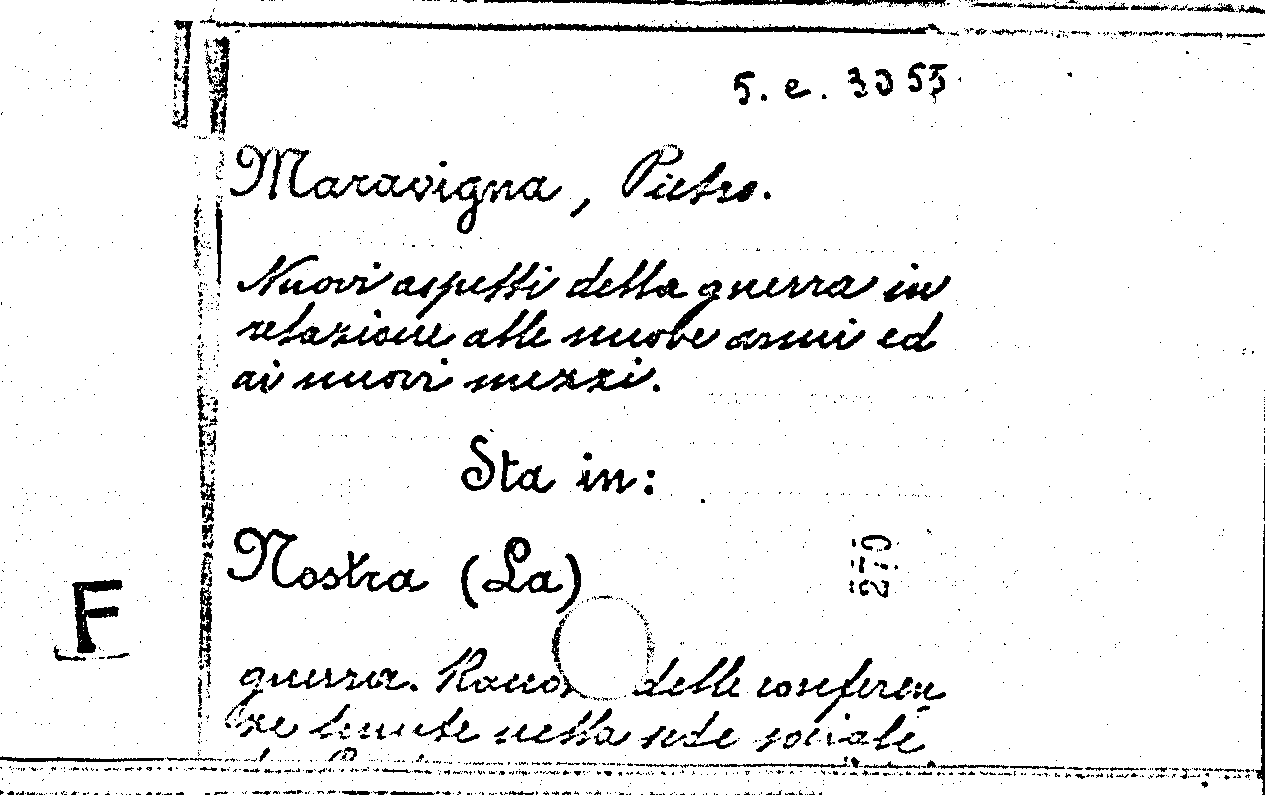 5. e. 3055
Maravigna, Pietro.
Nuovi aspetti della guerra in
relazione alle nuove armi ed
ai nuovi mezzi.
Sta in:
Nostra (La)
270
F
guerra. Racco delle conferen
ze tenute nella sede sociale